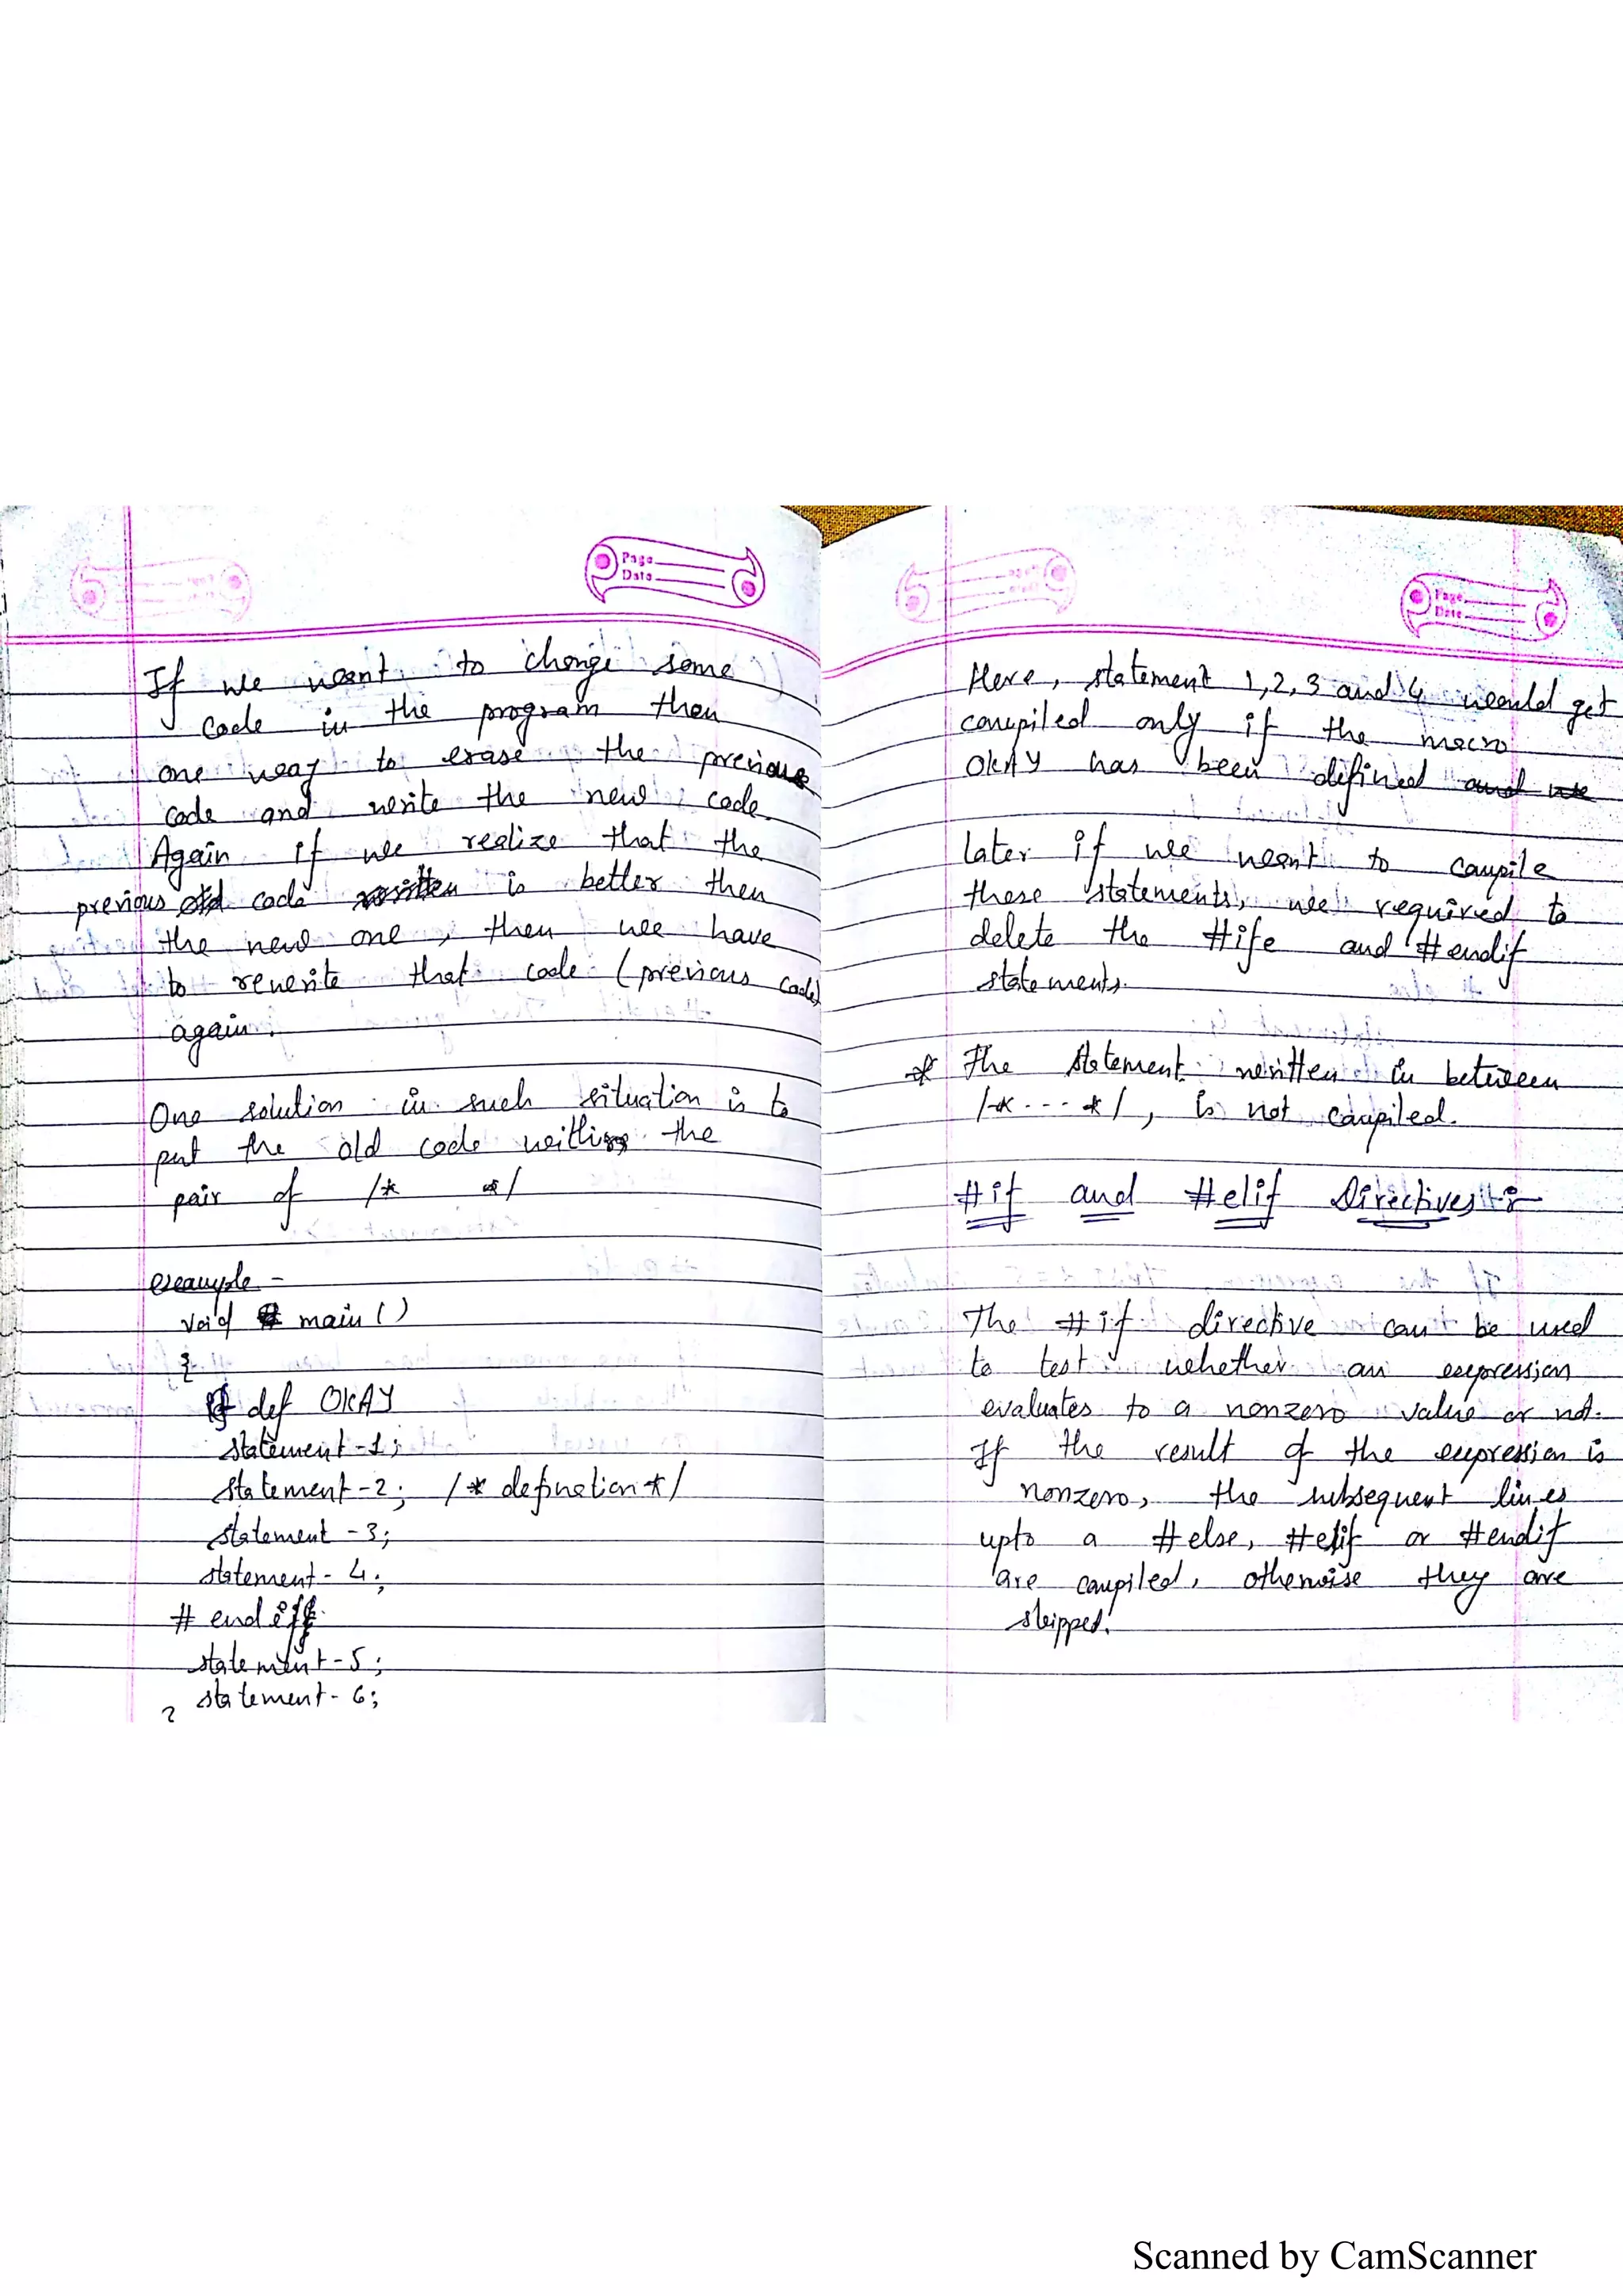 Page
Date
If we want to change some
code in the program then
one way to erase the previous
code and write the new code.
Again if we realize that the
previous code is better then
the new one, then we have
to rewrite that code (previous code)
again.
One solution in such situation is to
put the old code the
pair of /* */
example -
void main()
{
def OKAY
statement-1;
statement-2; /* defination */
statement-3;
statement-4;
# endif
statement-5;
statement-6;
}
Page
Date
Here, statement 1,2,3 and 4 would get
compiled only if the macro
OKAY has been defined
later if we want to compile
these statements, we required to
delete the #ife and #endif
statements.
* The statement written in between
/* --- */, is not compiled.
#if and #elif Directives :-
The #if directive can be used
to test whether an expression
evaluates to a nonzero value or not.
If the result of the expression is
nonzero, the subsequent lines
upto a #else, #elif or #endif
are compiled, otherwise they are
skipped.
Scanned by CamScanner